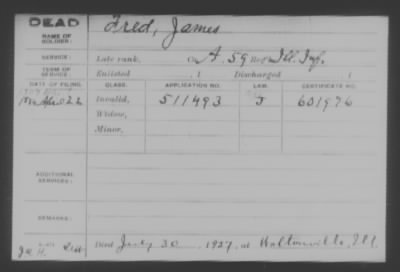 DEAD
NAME OF SOLDIER: Fred, James
SERVICE: Late rank, Co. A, 59 Reg't Ill. Inf.
TERM OF SERVICE: Enlisted , 1 Discharged , 1
DATE OF FILING. CLASS. APPLICATION NO. LAW. CERTIFICATE NO.
22 Invalid, 511493 J 601996
Widow,
Minor,
ADDITIONAL SERVICES:
REMARKS:
Died July 30, 1927, at Waltonville, Ill.